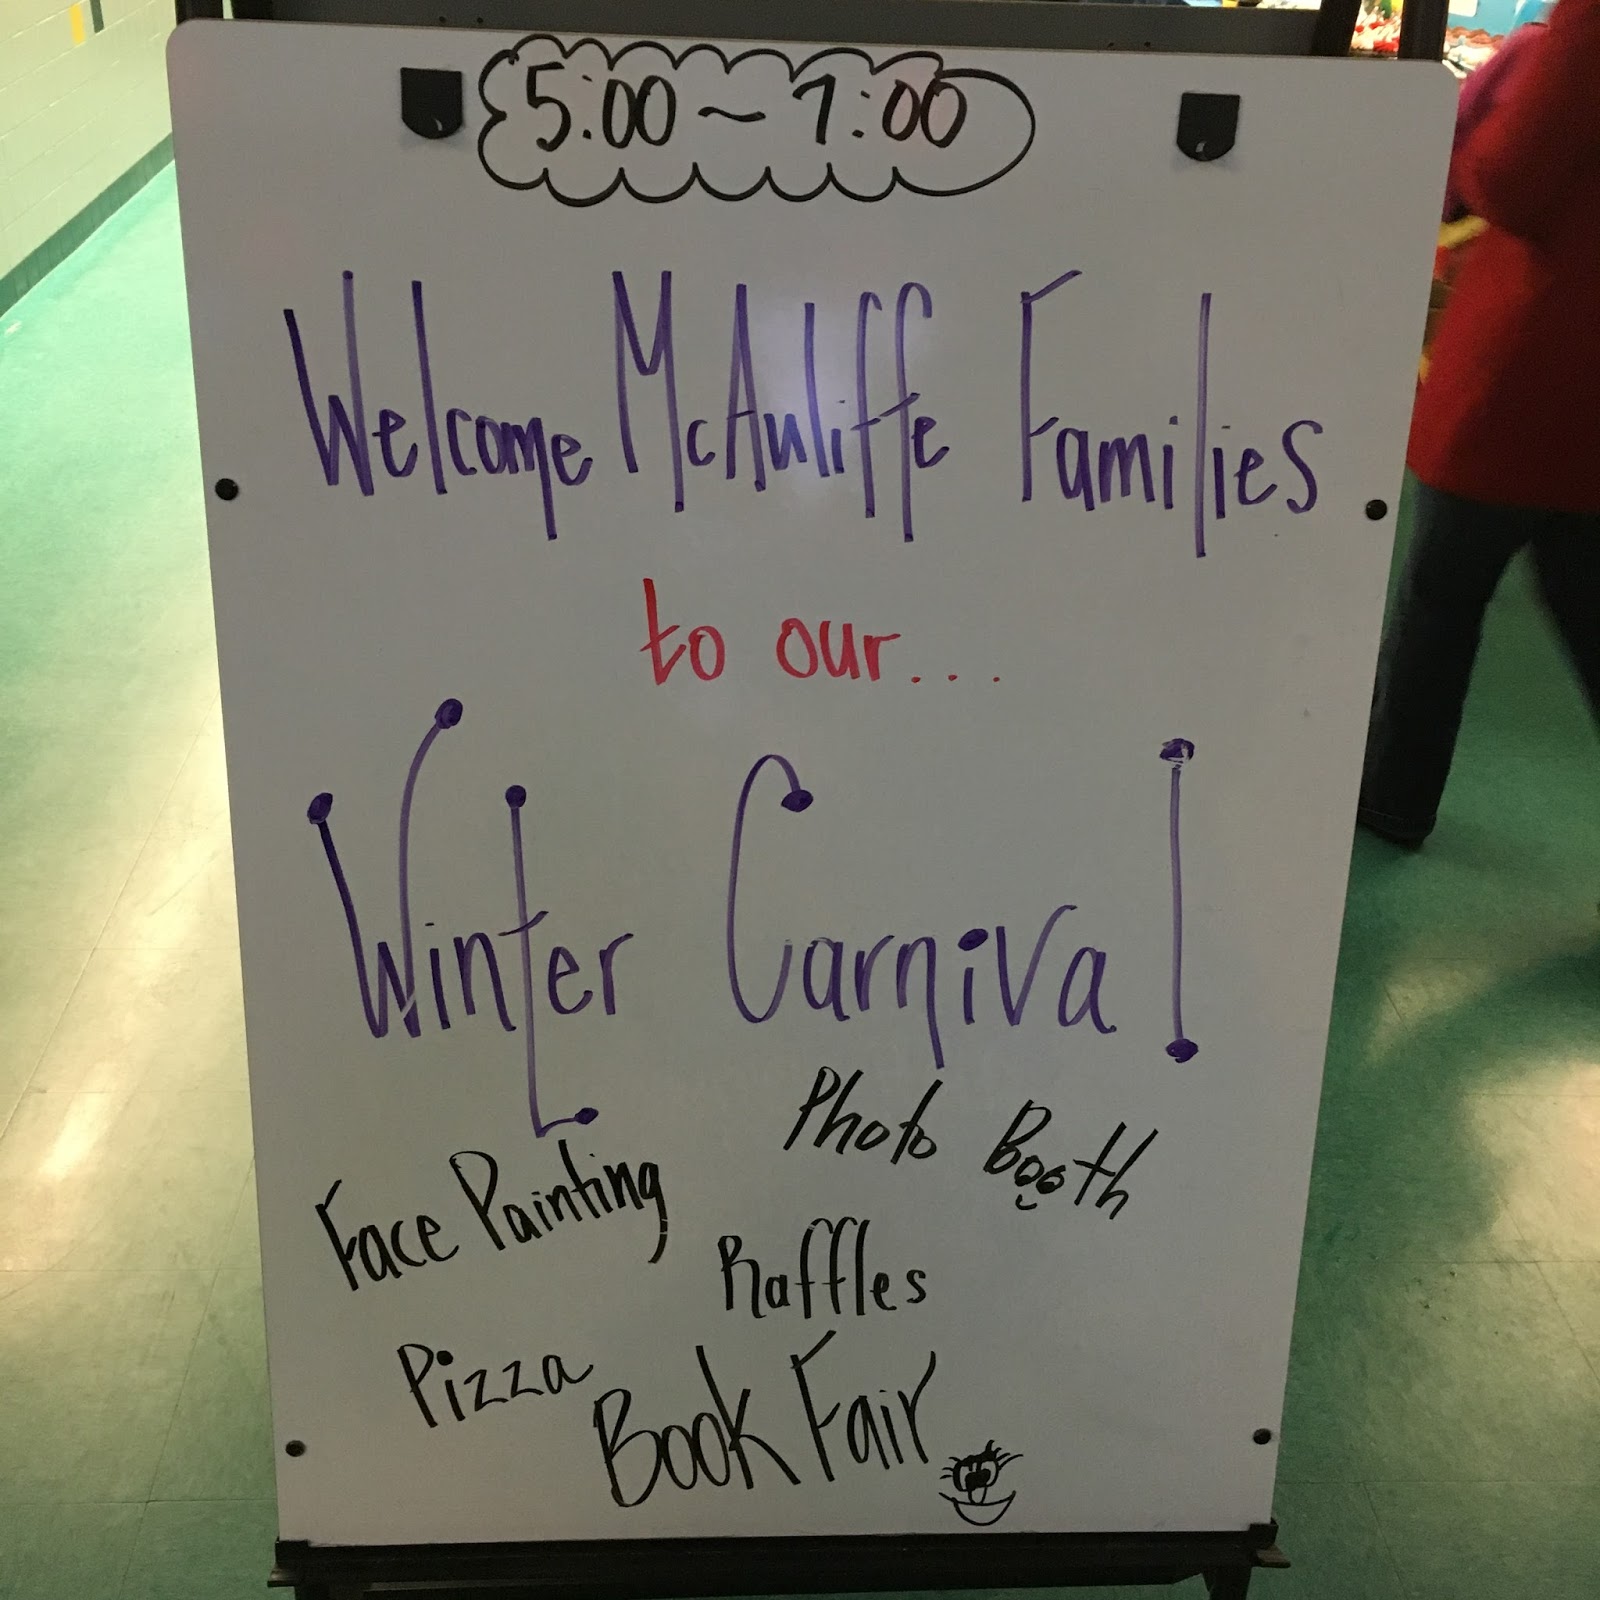 5:00 ~ 7:00
Welcome McAuliffe Families
to our...
Winter Carnival
Photo Booth
Face Painting
Raffles
Pizza
Book Fair